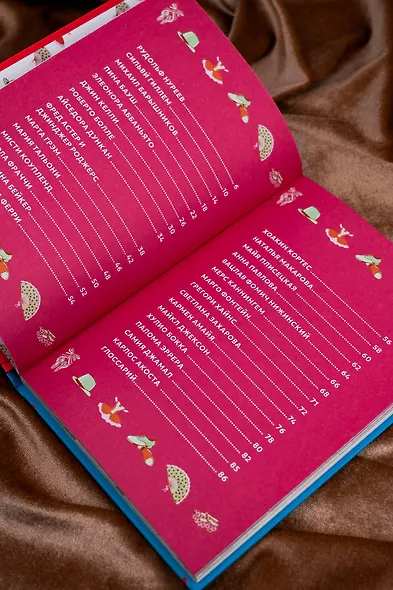 РУДОЛЬФ НУРЕЕВ 6
СИЛЬВИ ГИЛЛЕМ 10
МИХАИЛ БАРЫШНИКОВ 14
ПИНА БАУШ 18
ЭЛЕОНОРА АББАНЬЯТО 22
ДЖИН КЕЛЛИ 26
РОБЕРТО БОЛЛЕ 30
АЙСЕДОРА ДУНКАН 34
ФРЕД АСТЕР И
ДЖИНДЖЕР РОДЖЕРС 38
МАРТА ГРЭМ 42
МАРИЯ ТАЛЬОНИ 46
МИСТИ КОУПЛЕНД 48
ФРАЧЧИ 50
БЕЙКЕР 52
ФЕРРИ 54
ХОАКИН КОРТЕС 56
НАТАЛЬЯ МАКАРОВА 58
МАЙЯ ПЛИСЕЦКАЯ 60
АННА ПАВЛОВА 62
ВАЦЛАВ ФОМИЧ НИЖИНСКИЙ 64
МЕРС КАННИНГЕМ 66
МАРГО ФОНТЕЙН 68
ГРЕГОРИ ХАЙНС 71
СВЕТЛАНА ЗАХАРОВА 72
КАРМЕН АМАЙЯ 74
МАЙКЛ ДЖЕКСОН 76
ХУЛИО БОККА 78
ПАЛОМА ЭРРЕРА 80
САМИЯ ДЖАМАЛ 82
КАРЛОС АКОСТА 85
ГЛОССАРИЙ 86